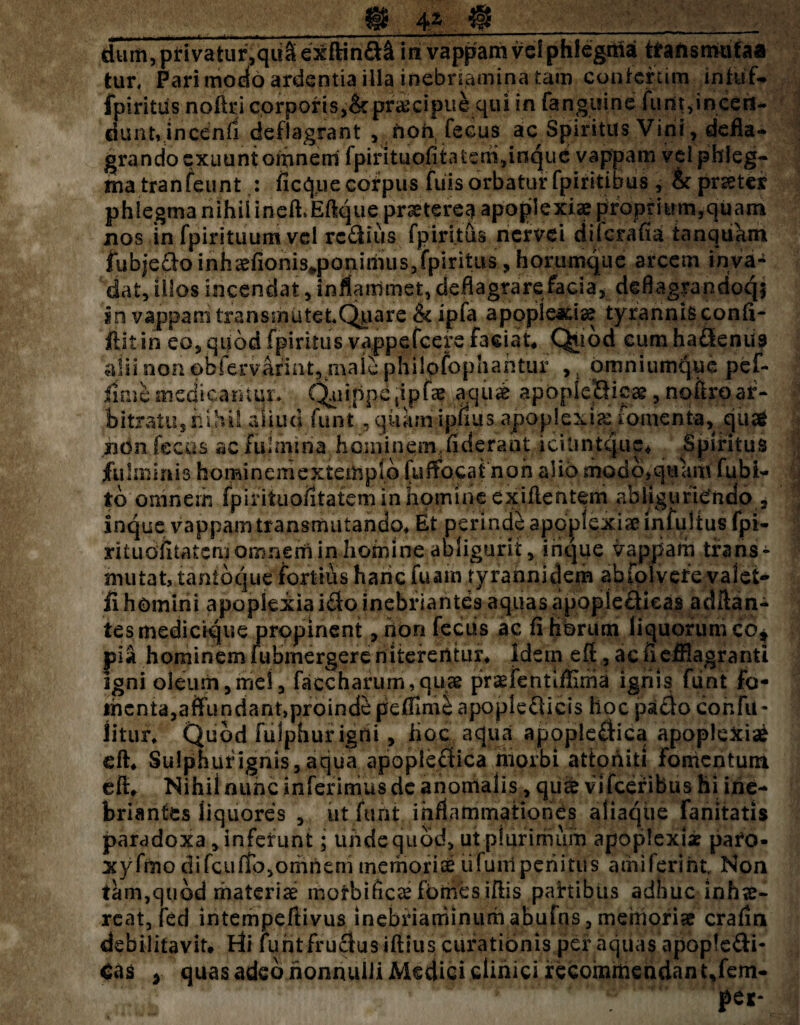 42
dum, privatur, quâ exſtinctâ in vappam vel phlegma transmutaa
tur. Pari modo ardentia illa inebriamina tam confertim infuſ-
ſpiritus noſtri corporis, & præcipuè qui in ſanguine ſunt, incen-
dunt, incenſi deflagrant, non ſecus ac Spiritus Vini, defla-
grando exuunt omnem ſpirituoſitatem, inque vappam vel phleg-
ma tranſeunt: ſicque corpus ſuis orbatur ſpiritibus, & præter
phlegma nihil ineſt. Eſtque præterea apoplexiæ proprium, quam
nos in ſpirituum vel rectius ſpiritûs nervei diſcraſia tanquam
ſubjecto inhæſionis ponimus, ſpiritus, horumque arcem inva-
dat, illos incendat, inflammet, deflagrare facia, deflagrandoq;
in vappam transmutet. Quare & ipſa apoplexiæ tyrannis conſi-
ſtit in eo, quòd ſpiritus vappeſcere faciat. Quòd cum hactenus
alii non obſervârint, malè philoſophantur, omniumque peſ-
ſimè medicantur. Quippe ipſæ aquæ apoplecticæ, noſtro ar-
bitratu, nihil aliud ſunt, quàm ipſius apoplexiæ fomenta, quæ
non ſecus ac fulmina hominem ſiderant iciuntque. Spiritus
fulminis hominem extemplò ſuffocat non aliò modò, quàm ſubi-
tò omnem ſpirituoſitatem in homine exiſtentem abliguriendo,
inque vappam transmutando. Et perindè apoplexiæ inſultus ſpi-
rituoſitatem omnem in homine abligurit, inque vappam trans-
mutat, tantòque fortiùs hanc ſuam tyrannidem abſolvere valet-
ſi homini apoplexia icto inebriantes aquas apoplecticas adſtan-
tes medicique propinent, non ſecus ac ſi horum liquorum co,
piâ hominem ſubmergere niterentur. Idem eſt, ac ſi efflagranti
igni oleum, mel, ſaccharum, quæ præſentiſſima ignis ſunt fo-
menta, affundant, proindè peſſimè apoplecticis hoc pacto conſu-
litur. Quòd ſulphur igni, hoc aqua apoplectica apoplexiæ
eſt. Sulphur ignis, aqua apoplectica morbi attoniti fomentum
eſt. Nihil nunc inferimus de anomalis, quæ viſceribus hi ine-
briantes liquores, ut ſunt inflammationes aliaque ſanitatis
paradoxa, inferunt; unde quòd, ut plurimùm apoplexiæ paro-
xyſmo diſcuſſo, omnem memoriæ uſum penitus amiſerint. Non
tam, quòd materiæ morbificæ fomes iſtis partibus adhuc inhæ-
reat, ſed intempeſtivus inebriaminum abuſus, memoriæ craſin
debilitavit. Hi ſunt fructus iſtius curationis per aquas apoplecti-
cas, quas adeò nonnulli Medici clinici recommendant, ſem-
per-